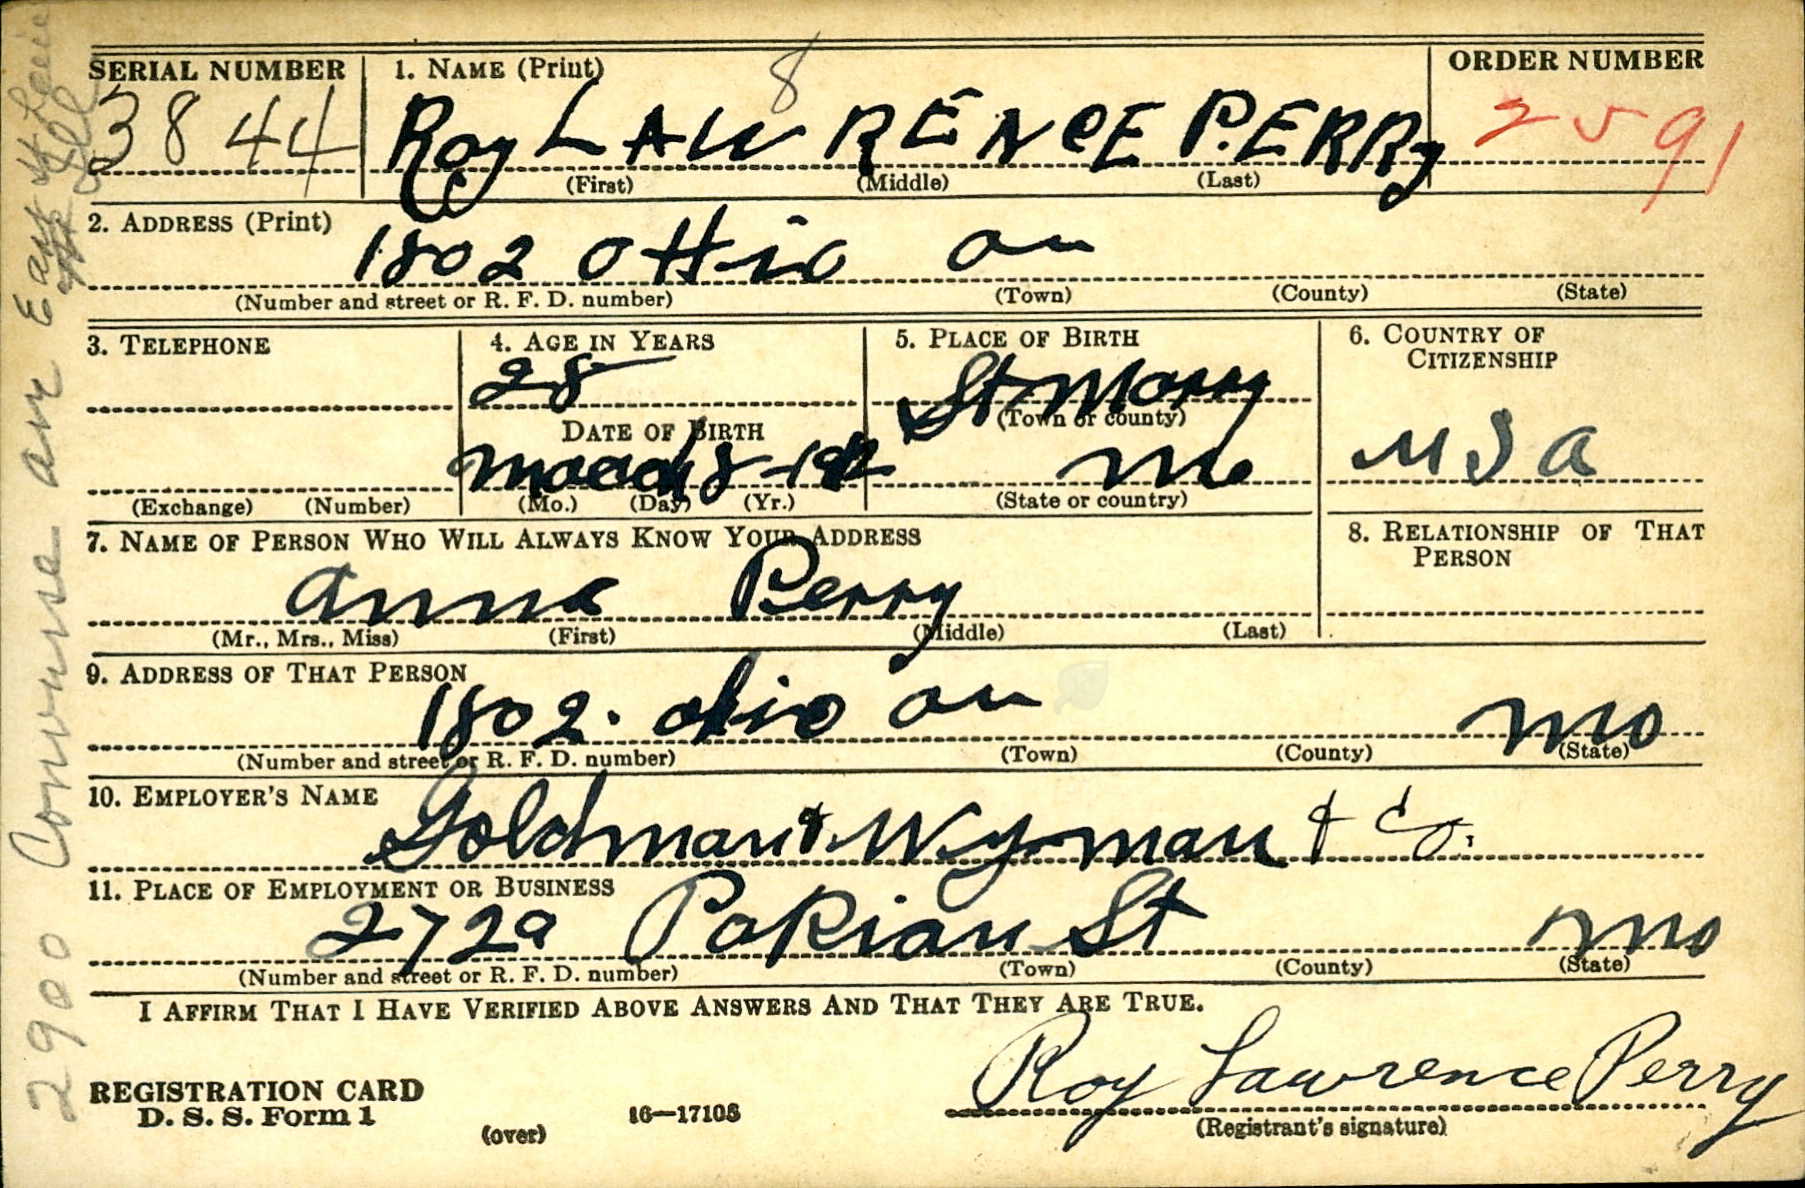 SERIAL NUMBER
3844
1. NAME (Print)
8
Roy LAWRENCE PERRy
(First) (Middle) (Last)
ORDER NUMBER
2591
2. ADDRESS (Print)
1802 Ohio av
(Number and street or R. F. D. number) (Town) (County) (State)
3. TELEPHONE
(Exchange) (Number)
4. AGE IN YEARS
28
DATE OF BIRTH
(Mo.) (Day) (Yr.)
5. PLACE OF BIRTH
St Marry
(Town or county)
Mo
(State or country)
6. COUNTRY OF
CITIZENSHIP
USA
7. NAME OF PERSON WHO WILL ALWAYS KNOW YOUR ADDRESS
Anna Perry
(Mr., Mrs., Miss) (First) (Middle) (Last)
8. RELATIONSHIP OF THAT
PERSON
9. ADDRESS OF THAT PERSON
1802. ohio av Mo
(Number and street or R. F. D. number) (Town) (County) (State)
10. EMPLOYER'S NAME
Goldman & Wyman & Co.
11. PLACE OF EMPLOYMENT OR BUSINESS
St Mo
(Number and street or R. F. D. number) (Town) (County) (State)
I AFFIRM THAT I HAVE VERIFIED ABOVE ANSWERS AND THAT THEY ARE TRUE.
Roy Lawrence Perry
(Registrant's signature)
REGISTRATION CARD
D. S. S. Form 1
(over)
16—17105
2900 Converse ave East St